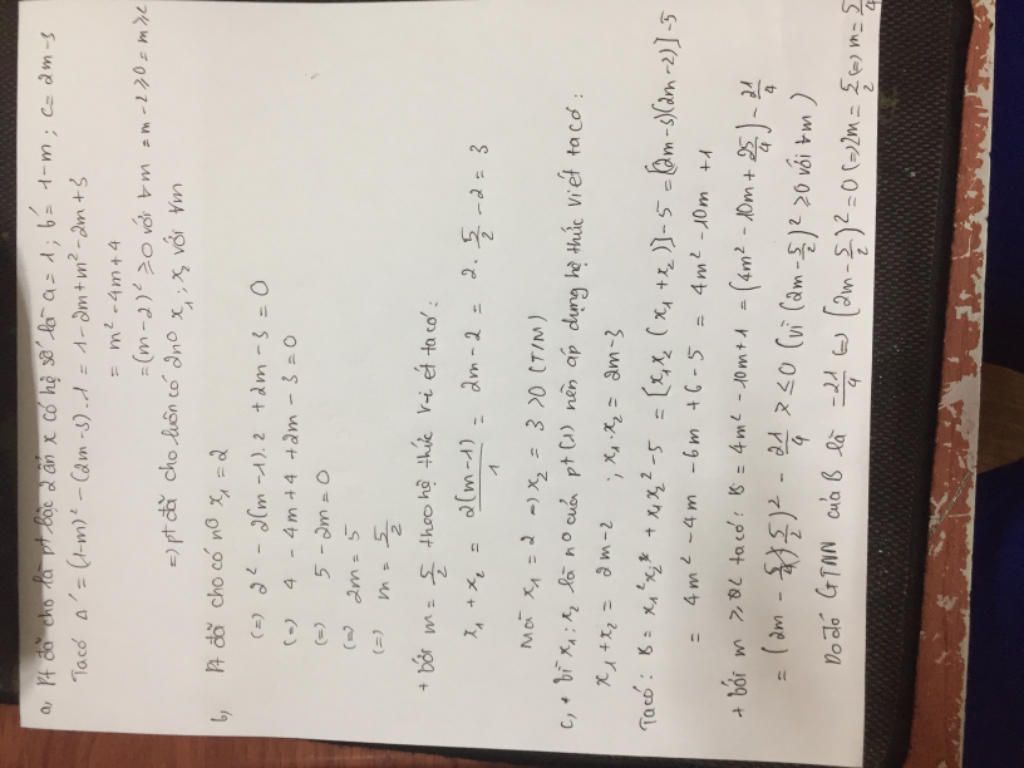 a, Pt đã cho là pt bậc 2 ẩn x có hệ số là a = 1 ; b' = 1-m ; c = 2m-3
Ta có Δ' = (1-m)² - (2m-3).1 = 1-2m+m²-2m+3
= m² - 4m + 4
= (m-2)² ≥ 0 với ∀m = m-2 ≥ 0 = m ≥ 2
=> pt đã cho luôn có 2 no x₁ ; x₂ với ∀m
b, Pt đã cho có no x₁ = 2
(=) 2² - 2(m-1).2 + 2m - 3 = 0
(=) 4 - 4m + 4 + 2m - 3 = 0
(=) 5 - 2m = 0
(=) 2m = 5
(=) m = 5/2
+ bởi m = 5/2 theo hệ thức Vi ét ta có :
x₁ + x₂ = 2(m-1)/1 = 2m - 2 = 2 . 5/2 - 2 = 3
Mà x₁ = 2 -> x₂ = 3 > 0 (T/M)
c, + Vì x₁ ; x₂ là no của pt (1) nên áp dụng hệ thức Vi ét ta có :
x₁ + x₂ = 2m - 2 ; x₁ . x₂ = 2m - 3
Ta có : B = x₁²x₂ + x₁x₂² - 5 = [x₁x₂ (x₁ + x₂)] - 5 = [(2m-3)(2m-2)] - 5
= 4m² - 4m - 6m + 6 - 5 = 4m² - 10m + 1
+ bởi m ≥ 2 ta có : B = 4m² - 10m + 1 = (4m² - 10m + 25/4) - 21/4
= (2m - 5/2)² - 21/4 ≤ 0 (vì (2m - 5/2)² ≥ 0 với ∀m)
Do đó GTNN của B là -21/4 (=) (2m - 5/2)² = 0 (=) 2m = 5/2 (=) m = 5/4